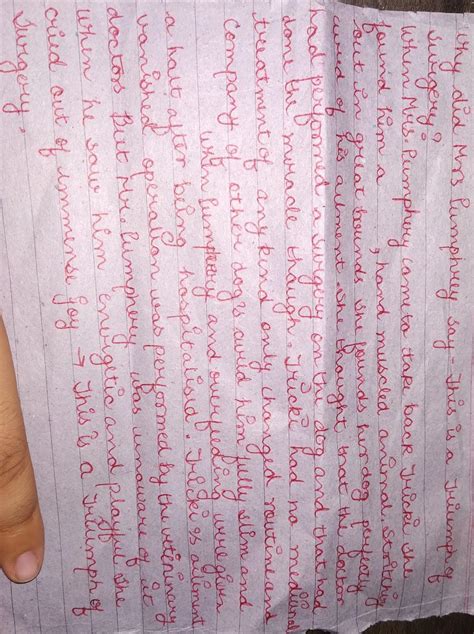 Why did Mrs Pumphrey say - This is a Triumph of
Surgery?
When Mrs. Pumphrey came to take back Tricki she
found him a , hard muscled animal. Stretching
out in great bounds she founds her dog perfectly
cured of his ailment. She thought that the doctor
had performed a surgery on the dog and that had
done the miracle though. Tricki had no medical
treatment of any kind only changed routine and
company of other dog's avid him fully slim and
when Pumphrey and overfeeding were given
a halt after being hospitalised. Tricki's ailment
vanished operation was performed by the veterinary
doctors But Mrs. Pumphrey was unaware of it
when he saw him energetic and playful she
cried out of immense joy → This is a Triumph of
Surgery.